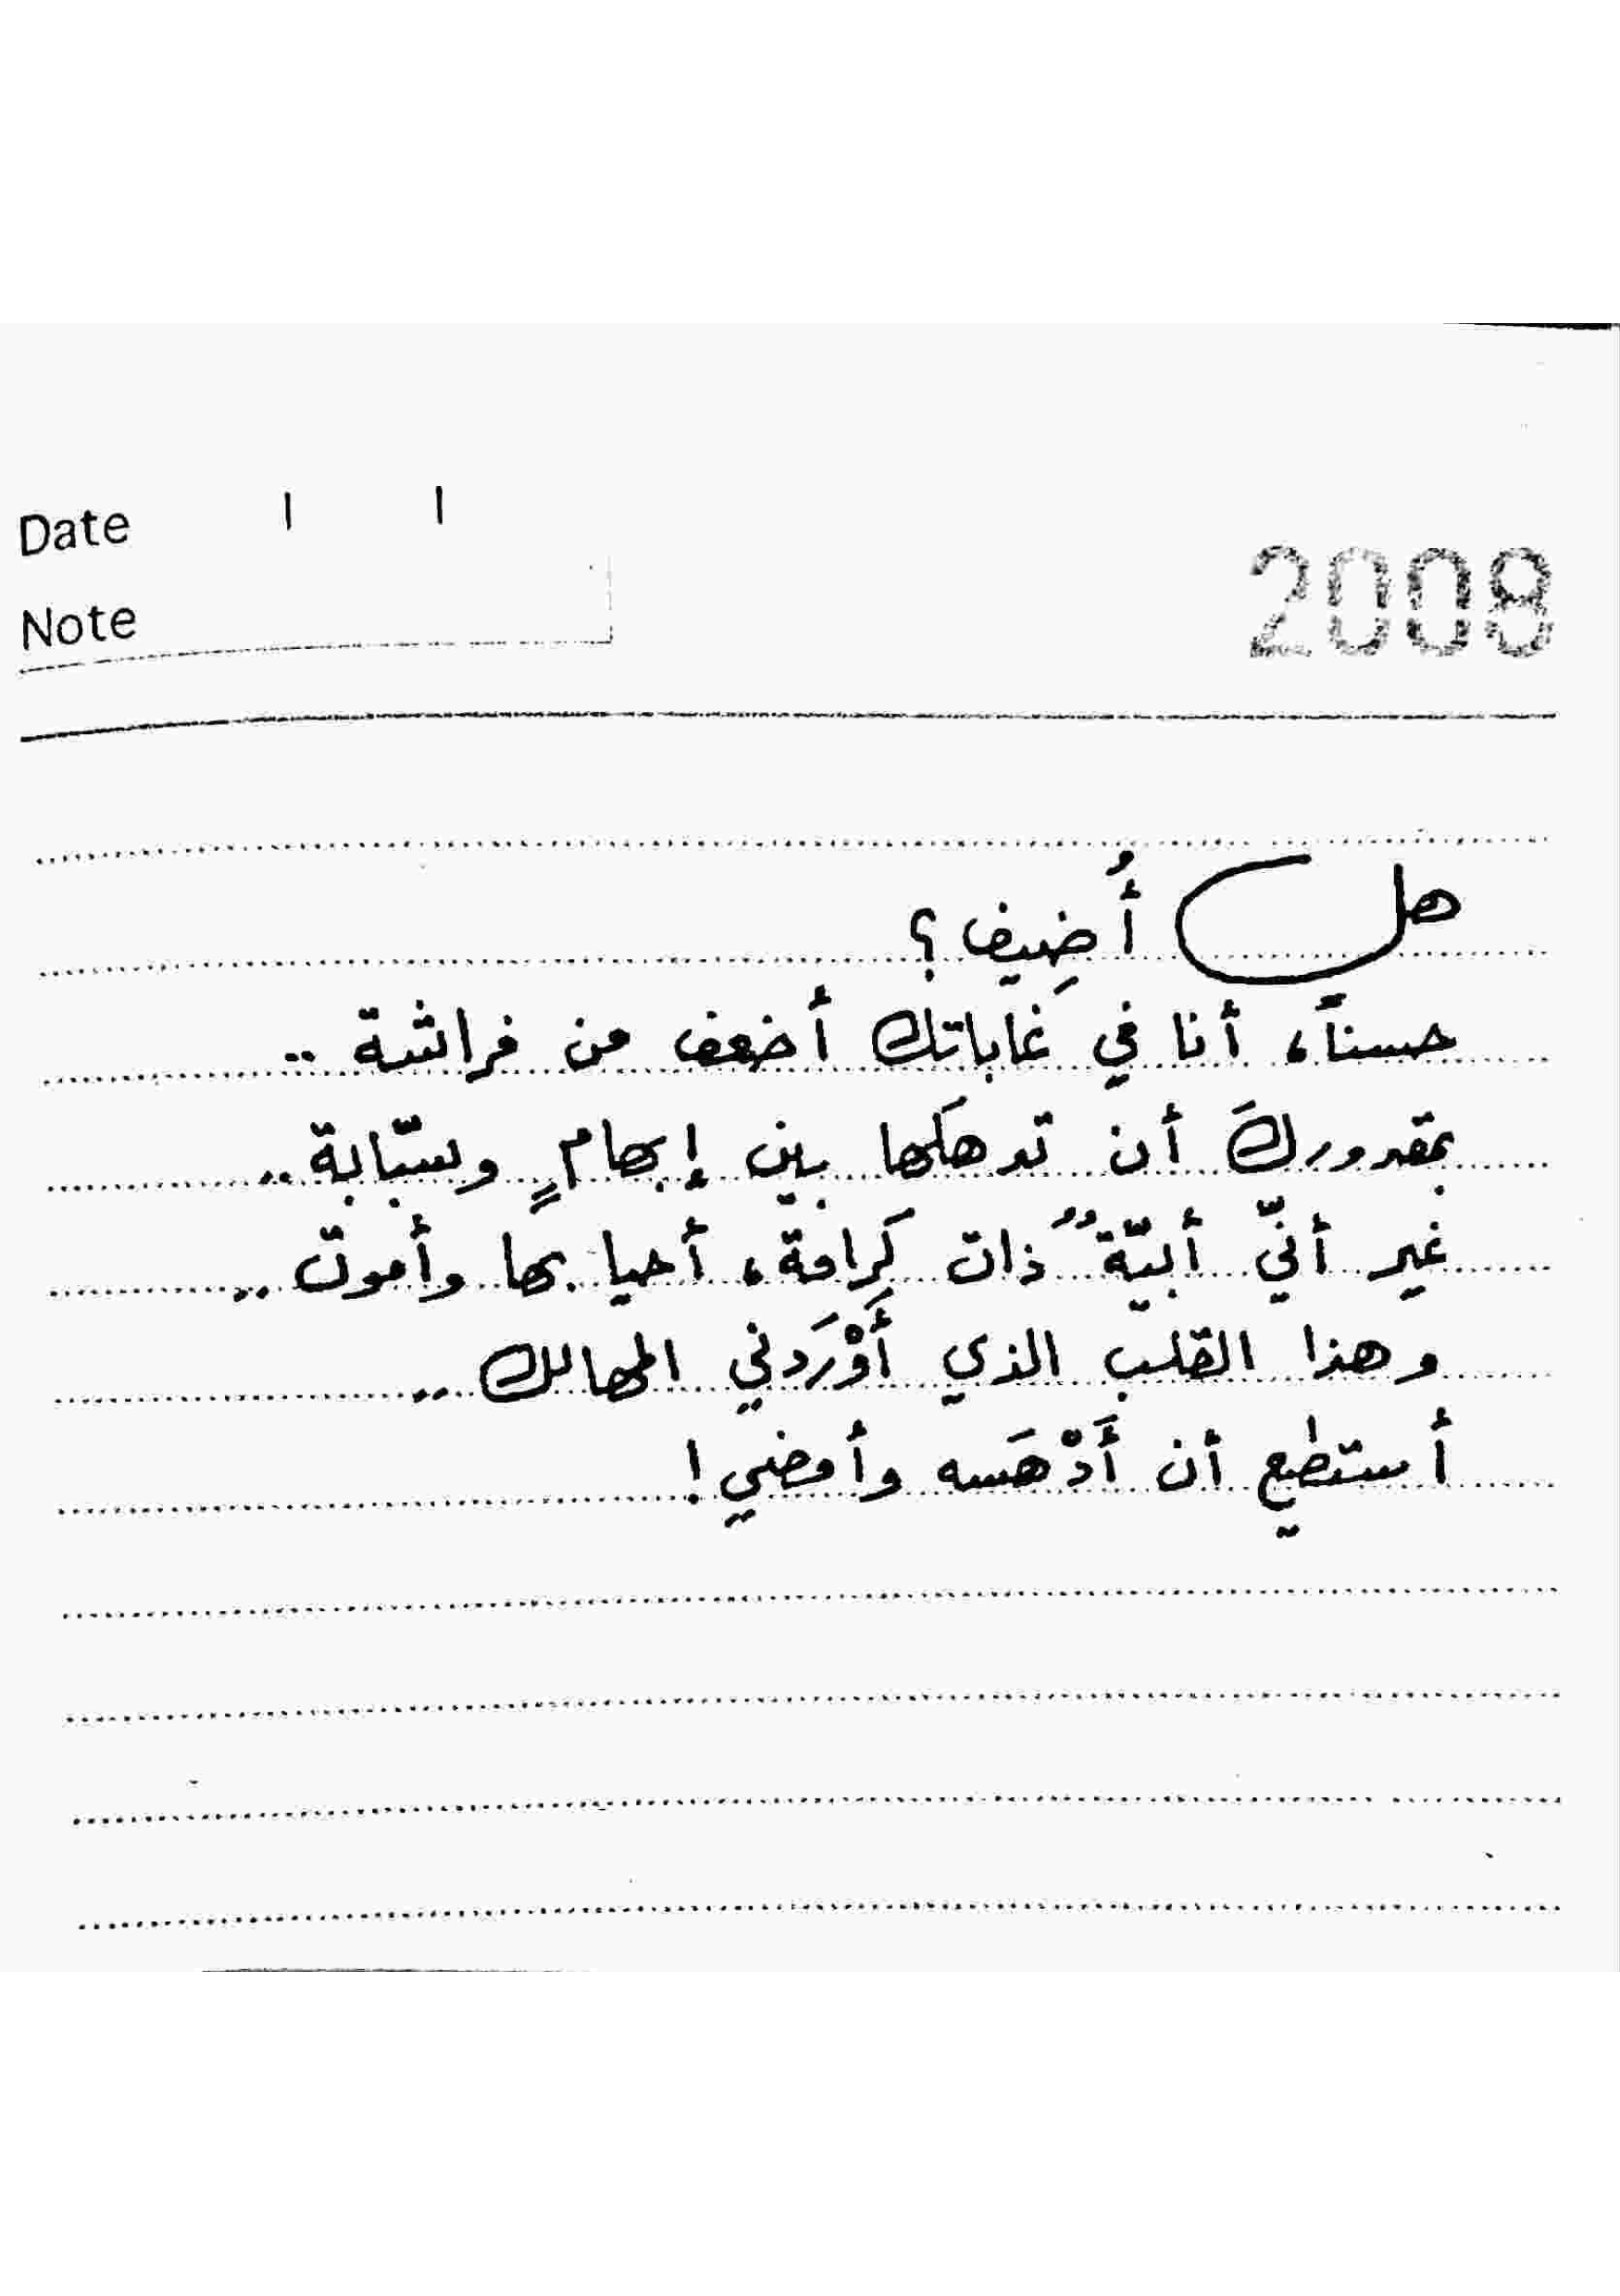 Date / /
Note
2008
هل أُضِيف؟
حسناً، أنا في غاباتك أضعف من فراشة ..
بمقدوركَ أن تدهكَها بين إبهامٍ وسبّابة ..
غير أنّي أبيّةٌ ذات كَرامة، أحيا بها وأموت ..
وهذا القلب الذي أَوْرَدني المهالك ..
أستطيع أن أَدْهَسه وأمضي!